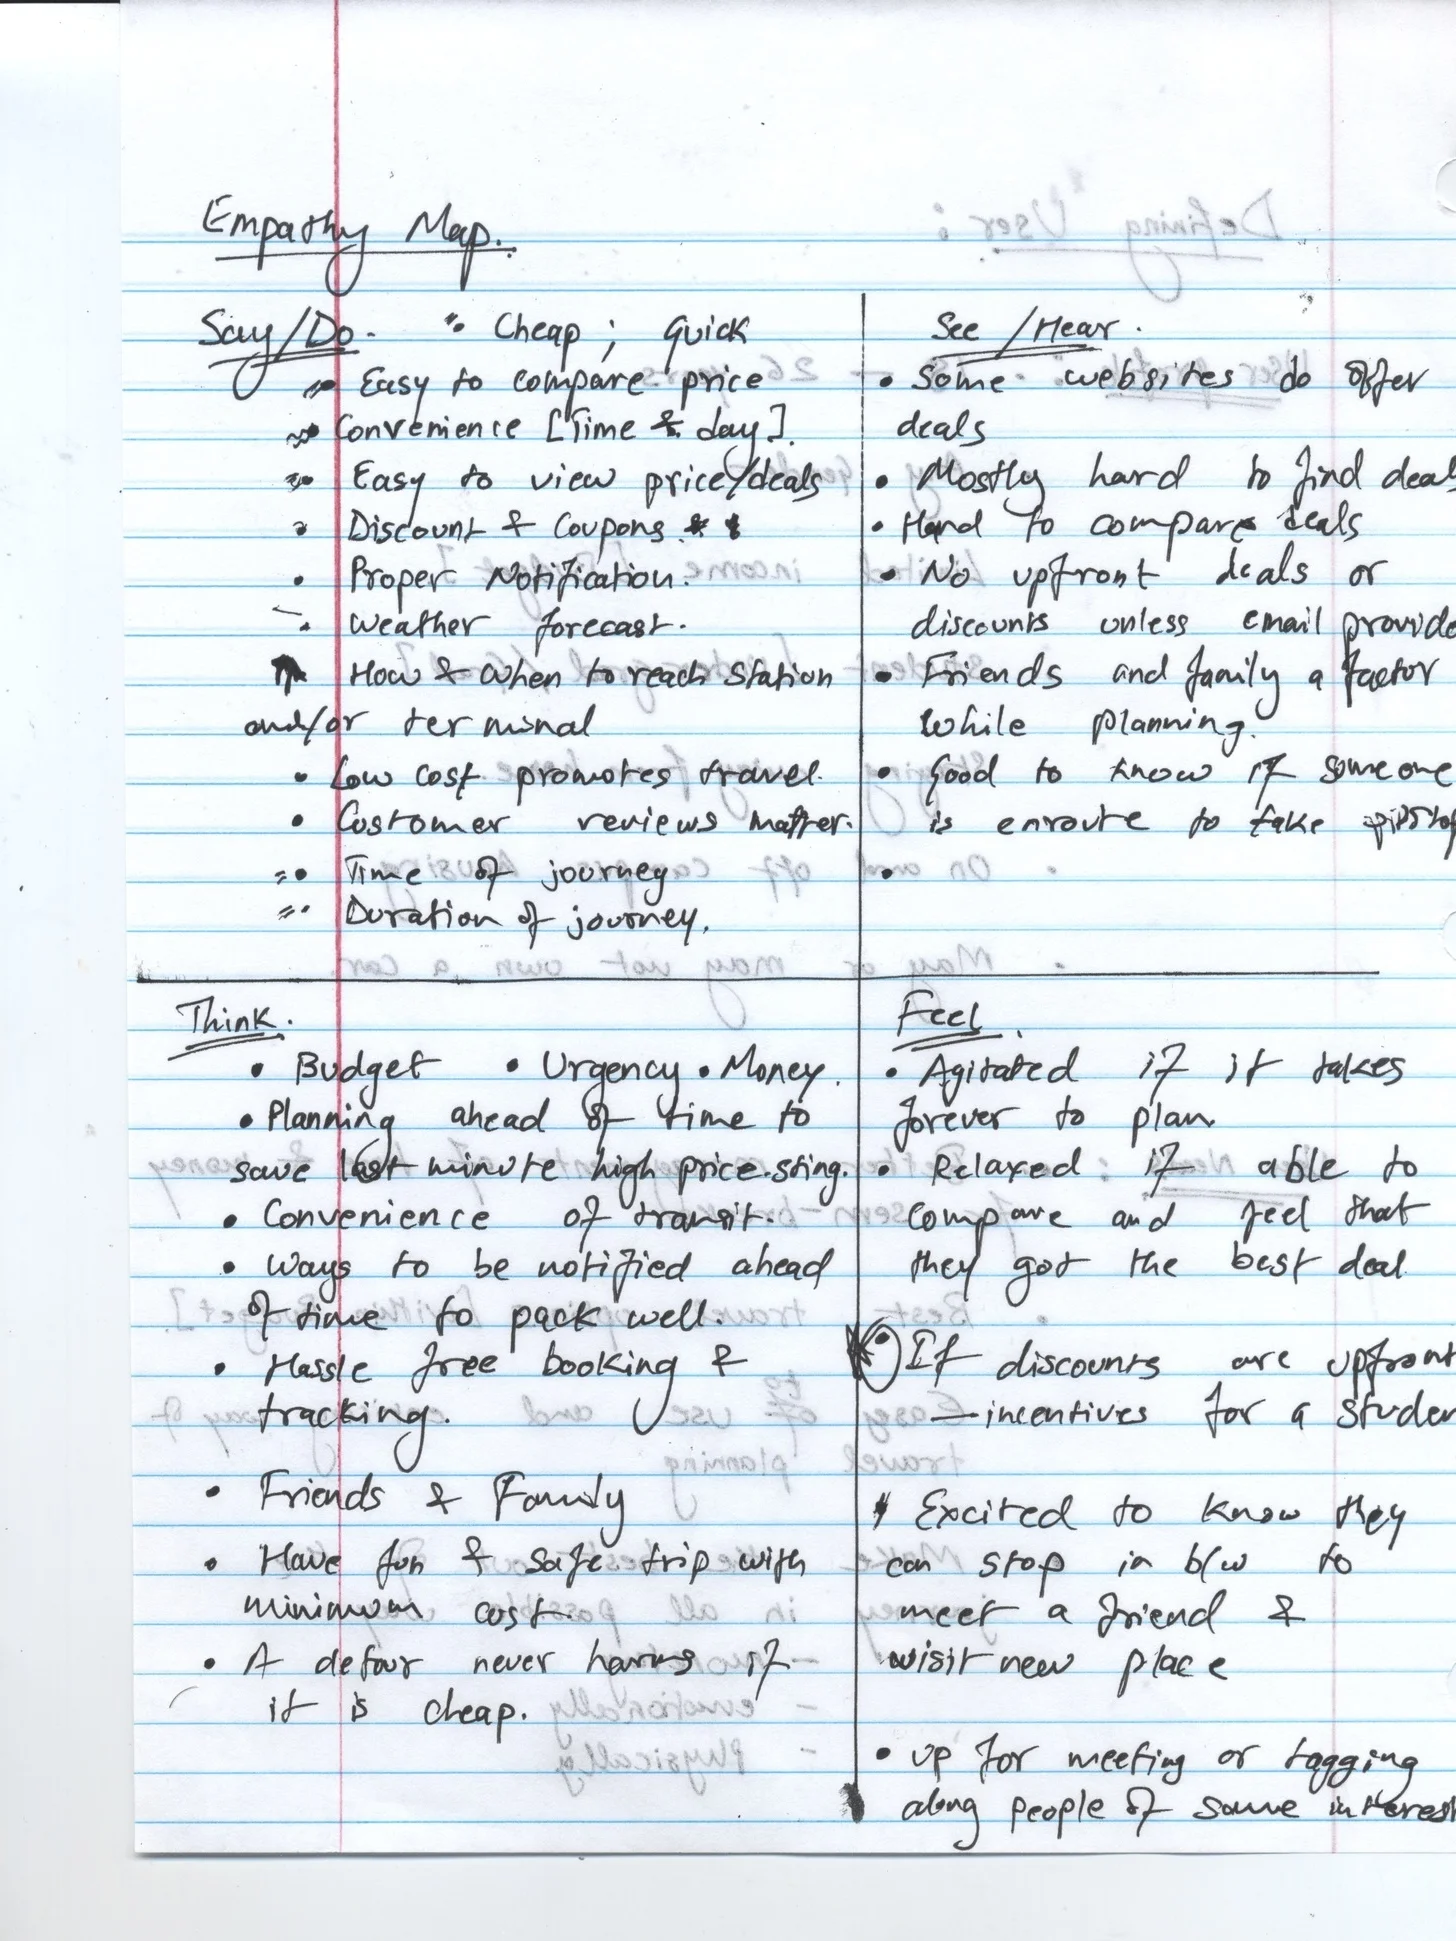 Empathy Map.
Say/Do. • Cheap ; Quick
• Easy to compare price
• Convenience [Time & day].
• Easy to view price/deals
• Discount & Coupons. * *
• Proper Notification.
• Weather forecast.
How & when to reach station
and/or terminal
• Low cost promotes travel.
• Customer reviews matter.
• Time of journey
• Duration of journey.
See /Hear.
• Some websites do offer
deals
• Mostly hard to find deals
• Hard to compare deals
• No upfront deals or
discounts unless email provide
• Friends and family a factor
while planning.
• Good to know if someone
is enroute to take
•
Think.
• Budget • Urgency • Money.
• Planning ahead of time to
save last minute high price sting.
• Convenience of transit.
• Ways to be notified ahead
of time to pack well.
• Hassle free booking &
tracking.
• Friends & Family
• Have fun & safe trip with
minimum cost.
• A detour never harms if
it is cheap.
Feel.
• Agitated if it takes
forever to plan.
• Relaxed if able to
compare and feel that
they got the best deal.
• If discounts are upfront
— incentives for a studen
• Excited to know they
can stop in b/w to
meet a friend &
visit new place
• up for meeting or tagging
along people of same interest